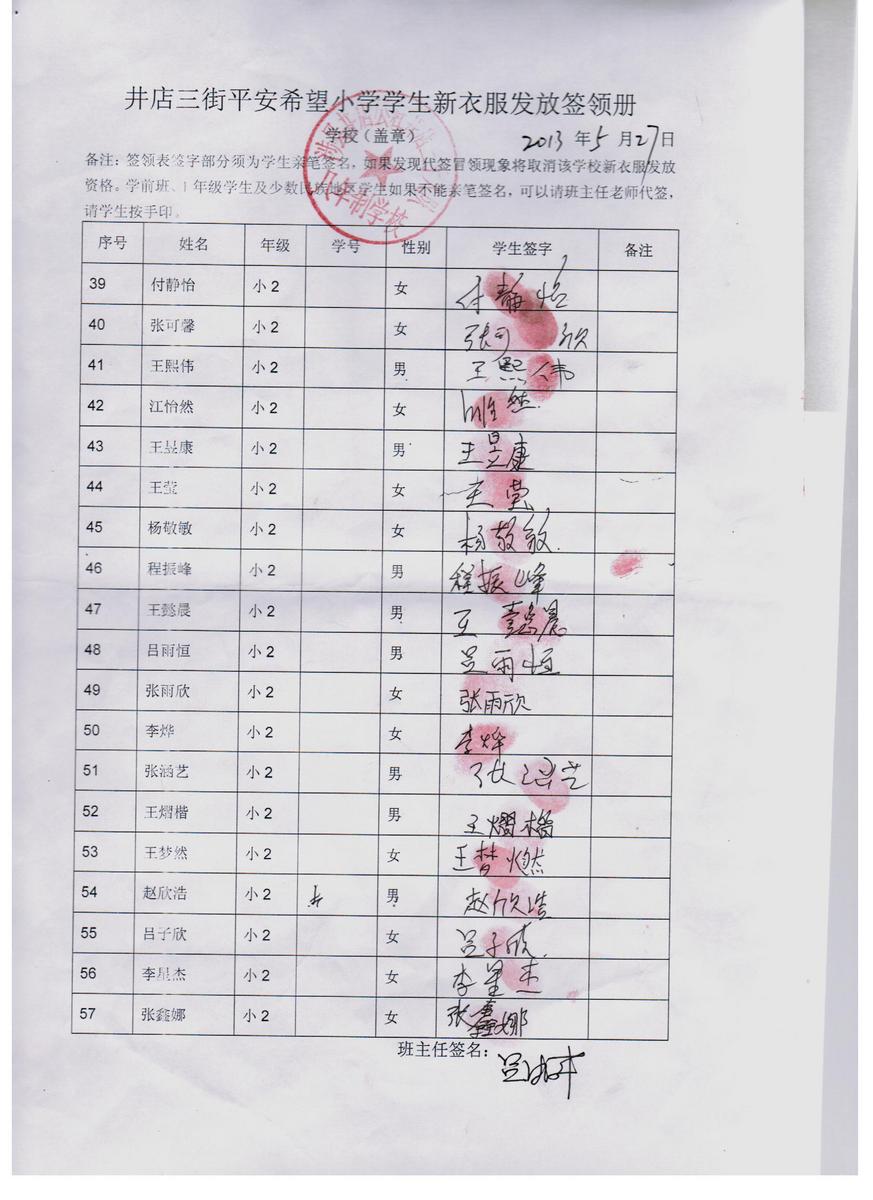 井店三街平安希望小学学生新衣服发放签领册
学校（盖章） 2013 年 5 月 27 日
备注：签领表签字部分须为学生亲笔签名，如果发现代签冒领现象将取消该学校新衣服发放
资格。学前班、1 年级学生及少数民族地区学生如果不能亲笔签名，可以请班主任老师代签，
请学生按手印。
九年制学校
序号 姓名 年级 学号 性别 学生签字 备注
39 付静怡 小 2 女 付静怡
40 张可馨 小 2 女 张可欣
41 王熙伟 小 2 男 王熙伟
42 江怡然 小 2 女
43 王昱康 小 2 男 王昱康
44 王莹 小 2 女 王莹
45 杨敬敏 小 2 女 杨敬敏
46 程振峰 小 2 男 程振峰
47 王懿晨 小 2 男 王懿晨
48 吕雨恒 小 2 男 吕雨恒
49 张雨欣 小 2 女 张雨欣
50 李烨 小 2 女 李烨
51 张涵艺 小 2 男 张涵艺
52 王熠楷 小 2 男 王熠楷
53 王梦然 小 2 女 王梦燃
54 赵欣浩 小 2 男 赵欣浩
55 吕子欣 小 2 女 吕子欣
56 李星杰 小 2 女 李星杰
57 张鑫娜 小 2 女 张鑫娜
班主任签名：